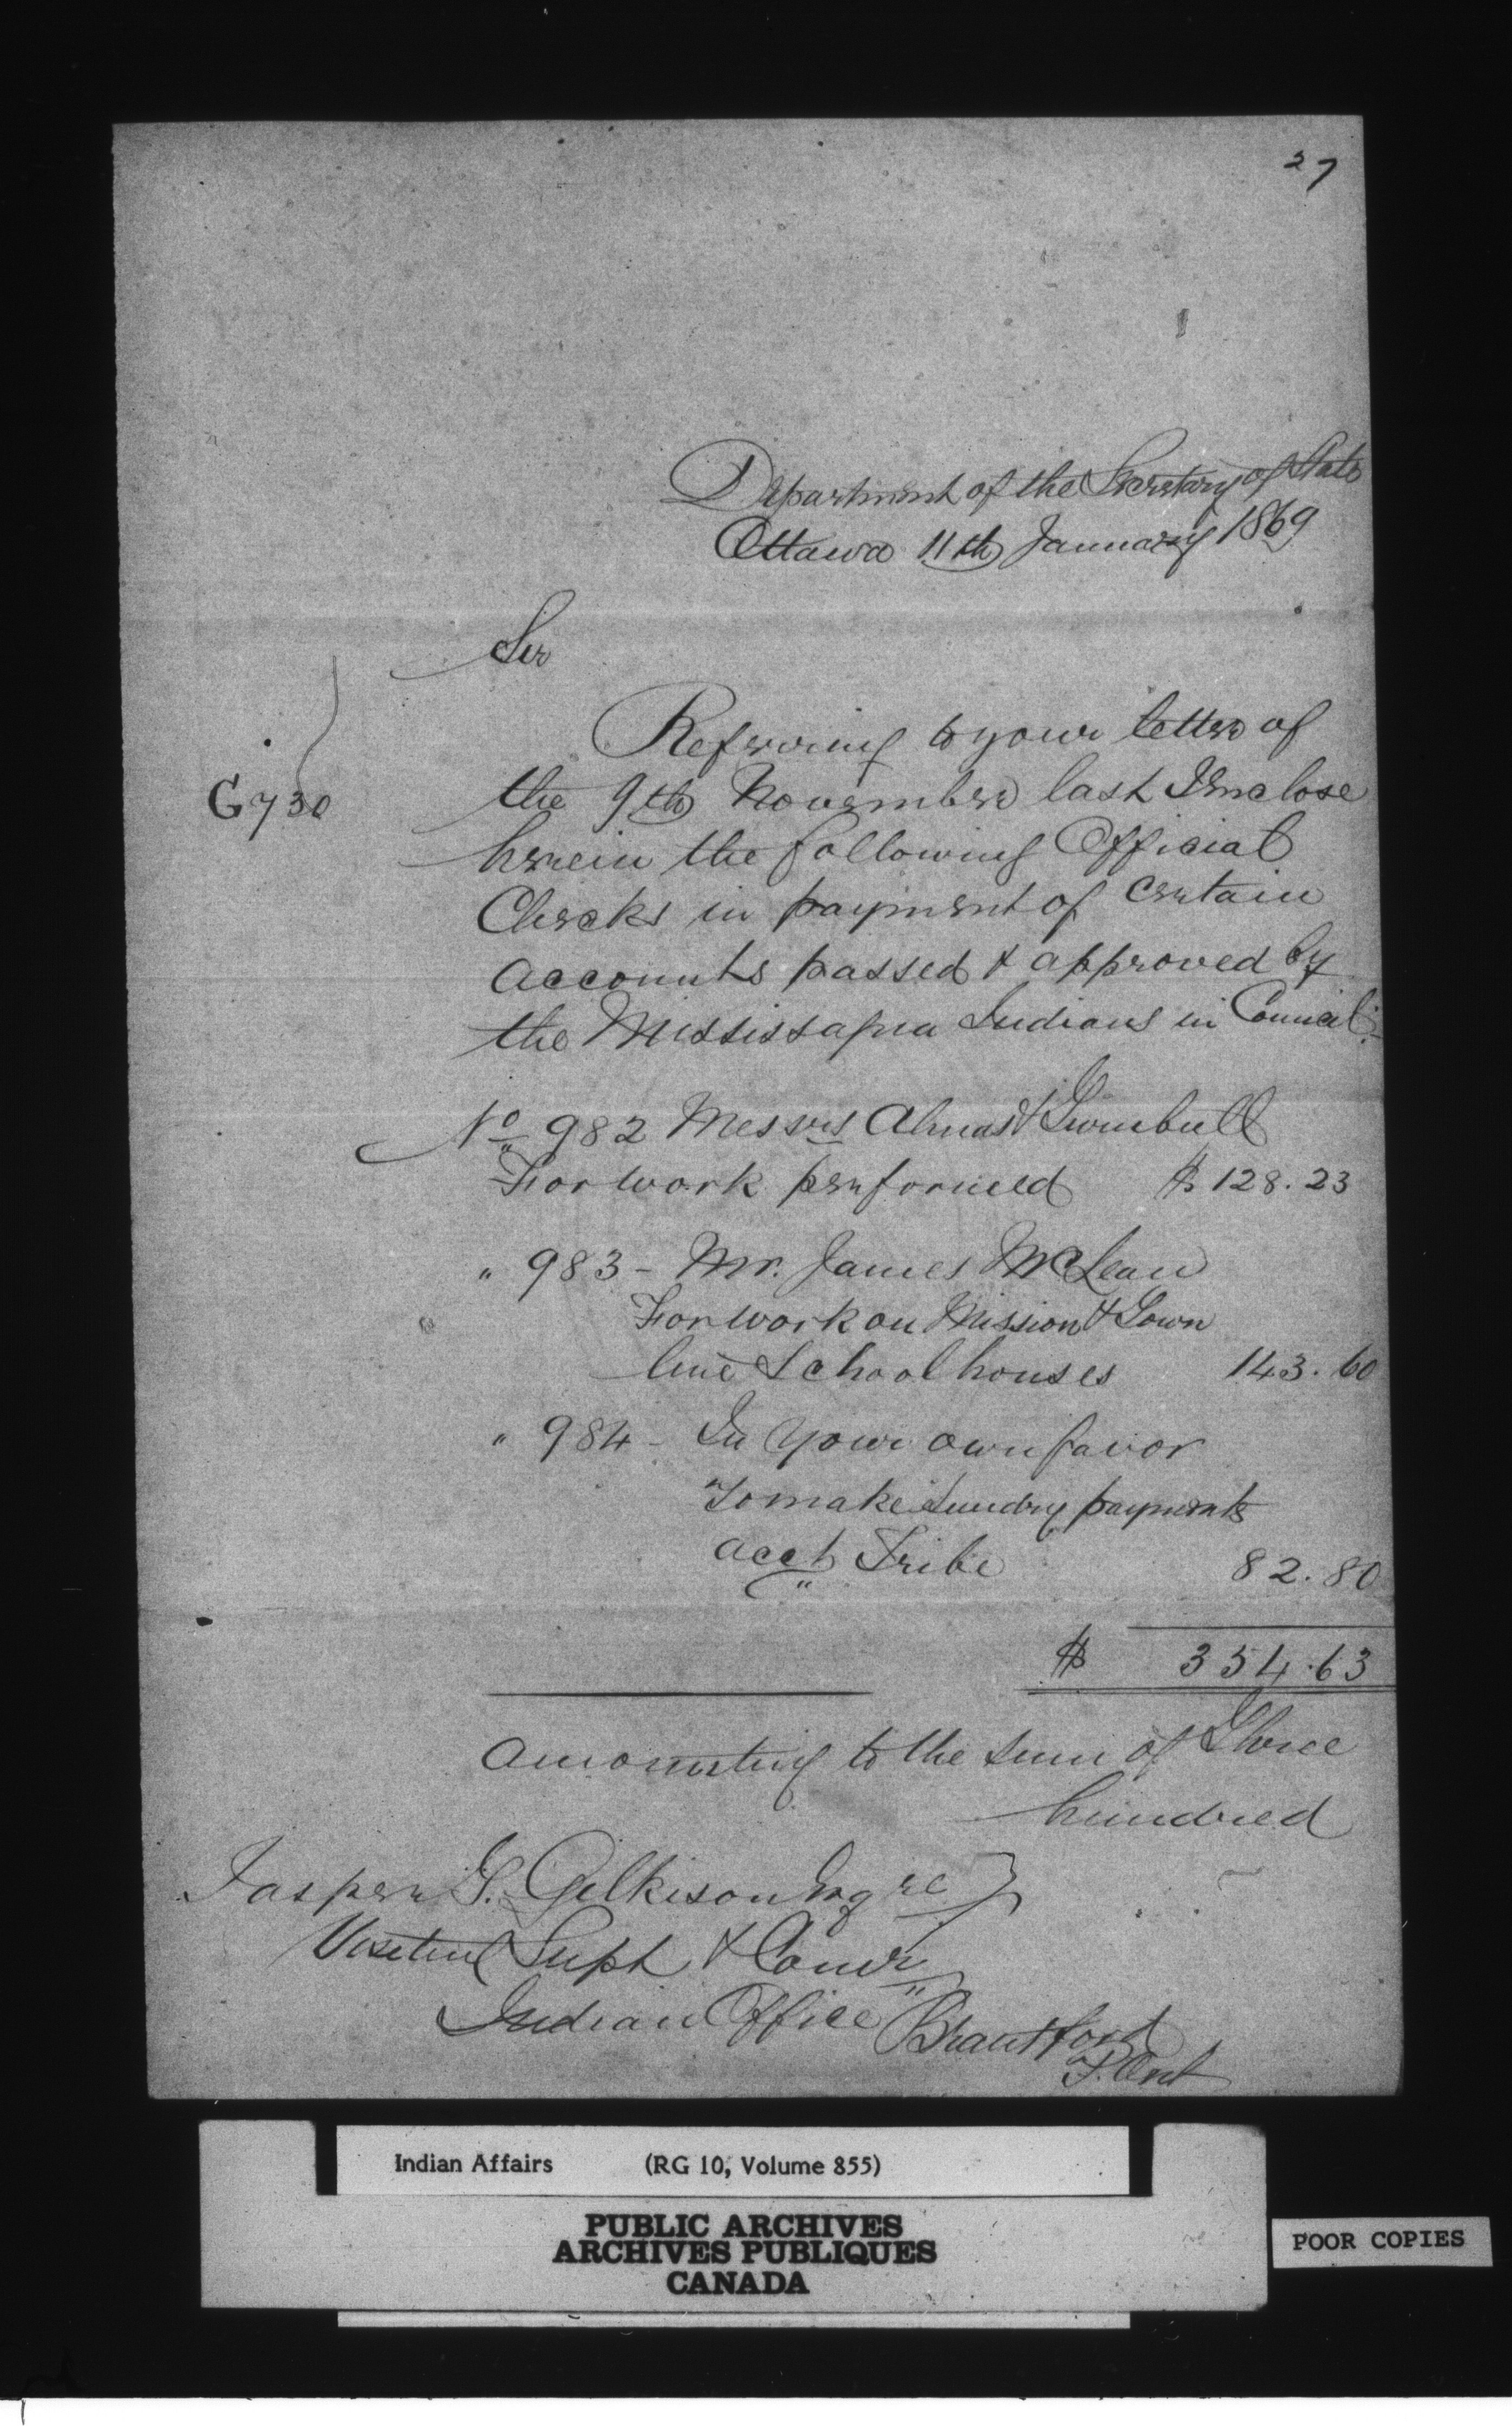 27
Department of the Secretary of State
Ottawa 11th January 1869
Sir
Referring to your letter of
G730
the 9th November last I enclose
herein the following Official
Checks in payment of certain
accounts passed & approved by
the Mississagua Indians in Council:
No 982 Messrs Almas & Turnbull
For work performed $128.23
" 983 - Mr. James McLean
For work on Mission & Town
line School houses 143.60
" 984 - In your own favor
To make Sundry payments
acct Tribe 82.80
$ 354.63
amounting to the sum of Three
hundred
Jasper T. Gilkison Esqre
Visiting Supt & Comr
Indian Office Brantford
P. Ont
Indian Affairs (RG 10, Volume 855)
PUBLIC ARCHIVES
ARCHIVES PUBLIQUES
CANADA
POOR COPIES